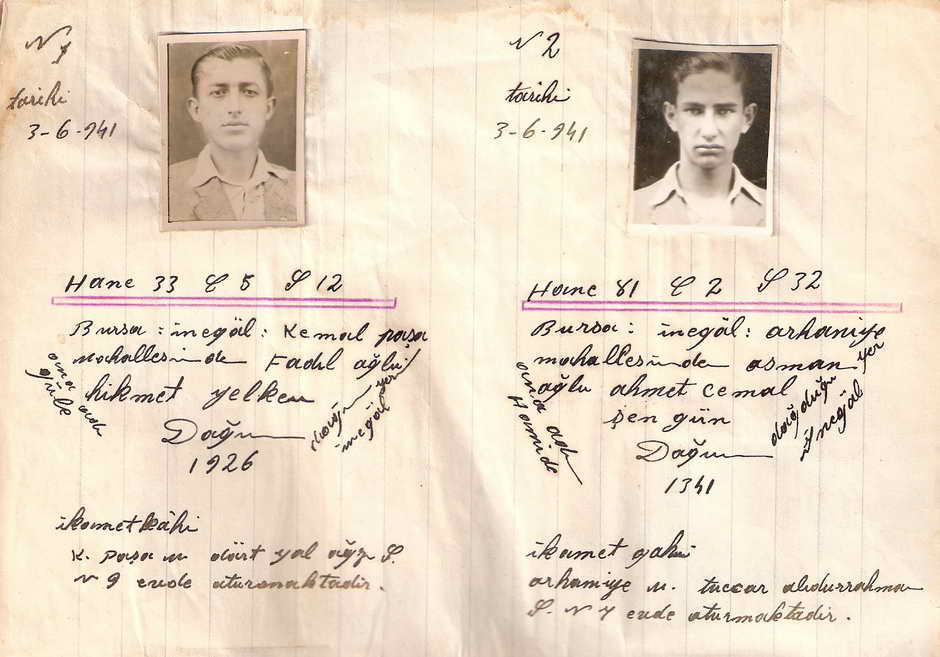 N 1
tarihi
3-6-941
Hane 33 C 5 S 12
Bursa: inegöl: Kemal paşa
mahallesinde Fadıl oğlu
hikmet yelken
ana adı
doğu yer
inegöl
Doğum
1926
ikametkâhi
K. paşa m dört yol ağzı S.
N 9 evde oturmaktadir.
N 2
tarihi
3-6-941
Hane 81 C 2 S 32
Bursa: inegöl: orhaniye
mahallesinde osman
oğlu ahmet cemal
şen gün
ana adı
Hamide
doğduğu yer
inegöl
Doğum
1341
ikamet gahi
orhaniye m. tuccar abdurrahman
S. N 7 evde oturmaktadir.